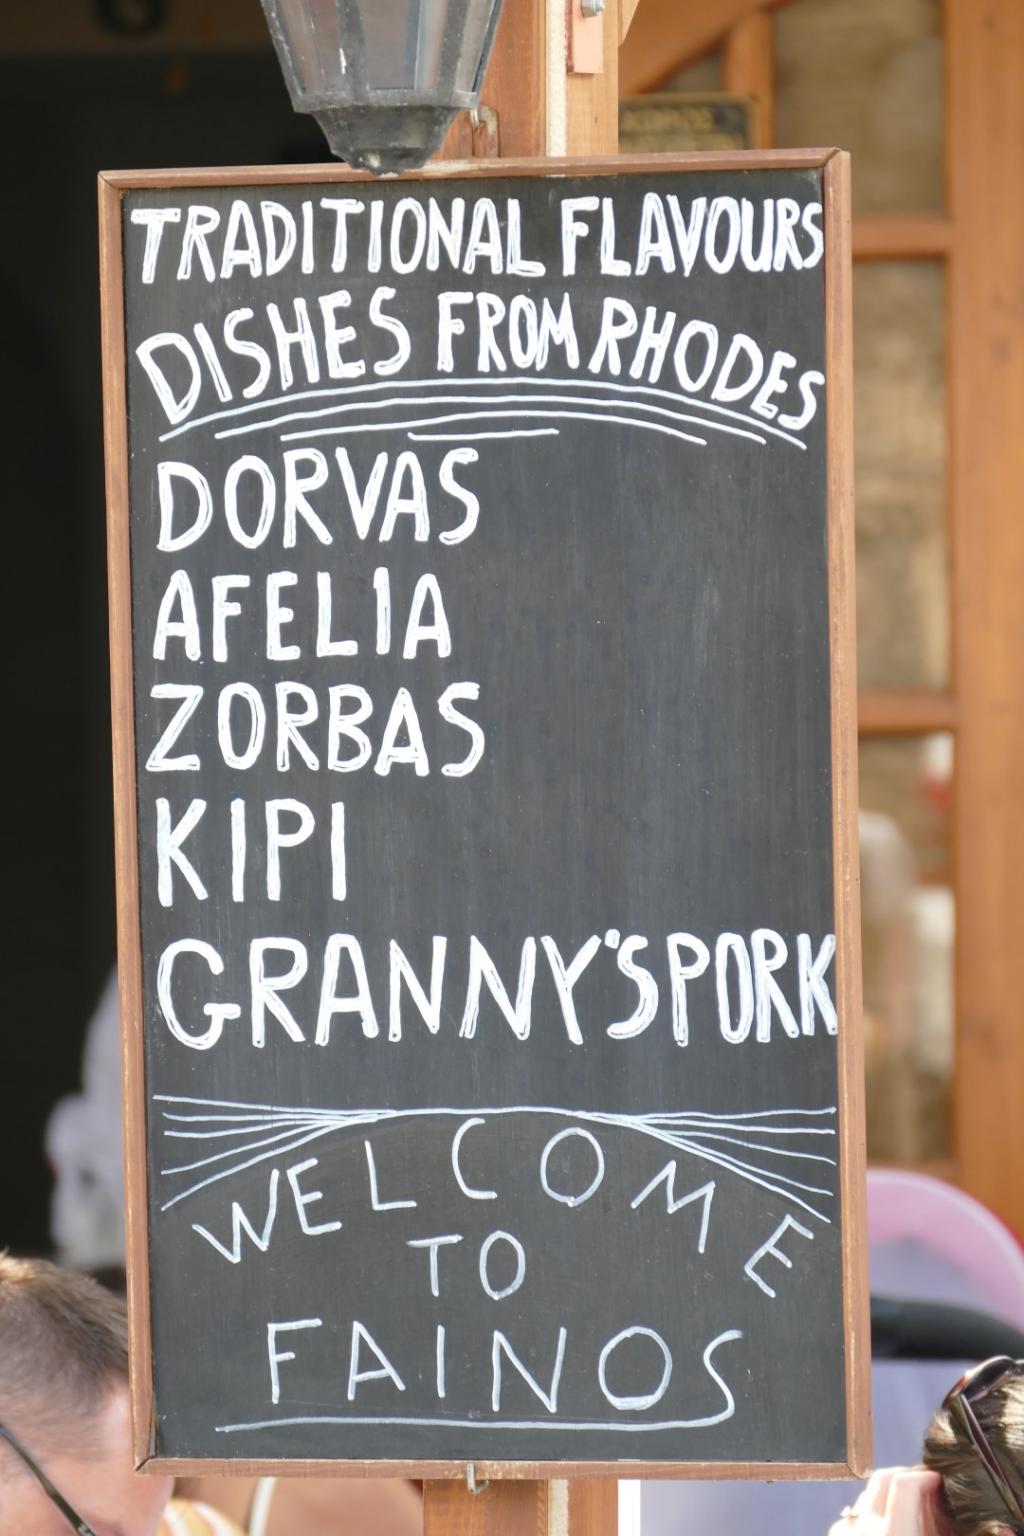 TRADITIONAL FLAVOURS
DISHES FROM RHODES
DORVAS
AFELIA
ZORBAS
KIPI
GRANNY'S PORK
WELCOME
TO
FAINOS